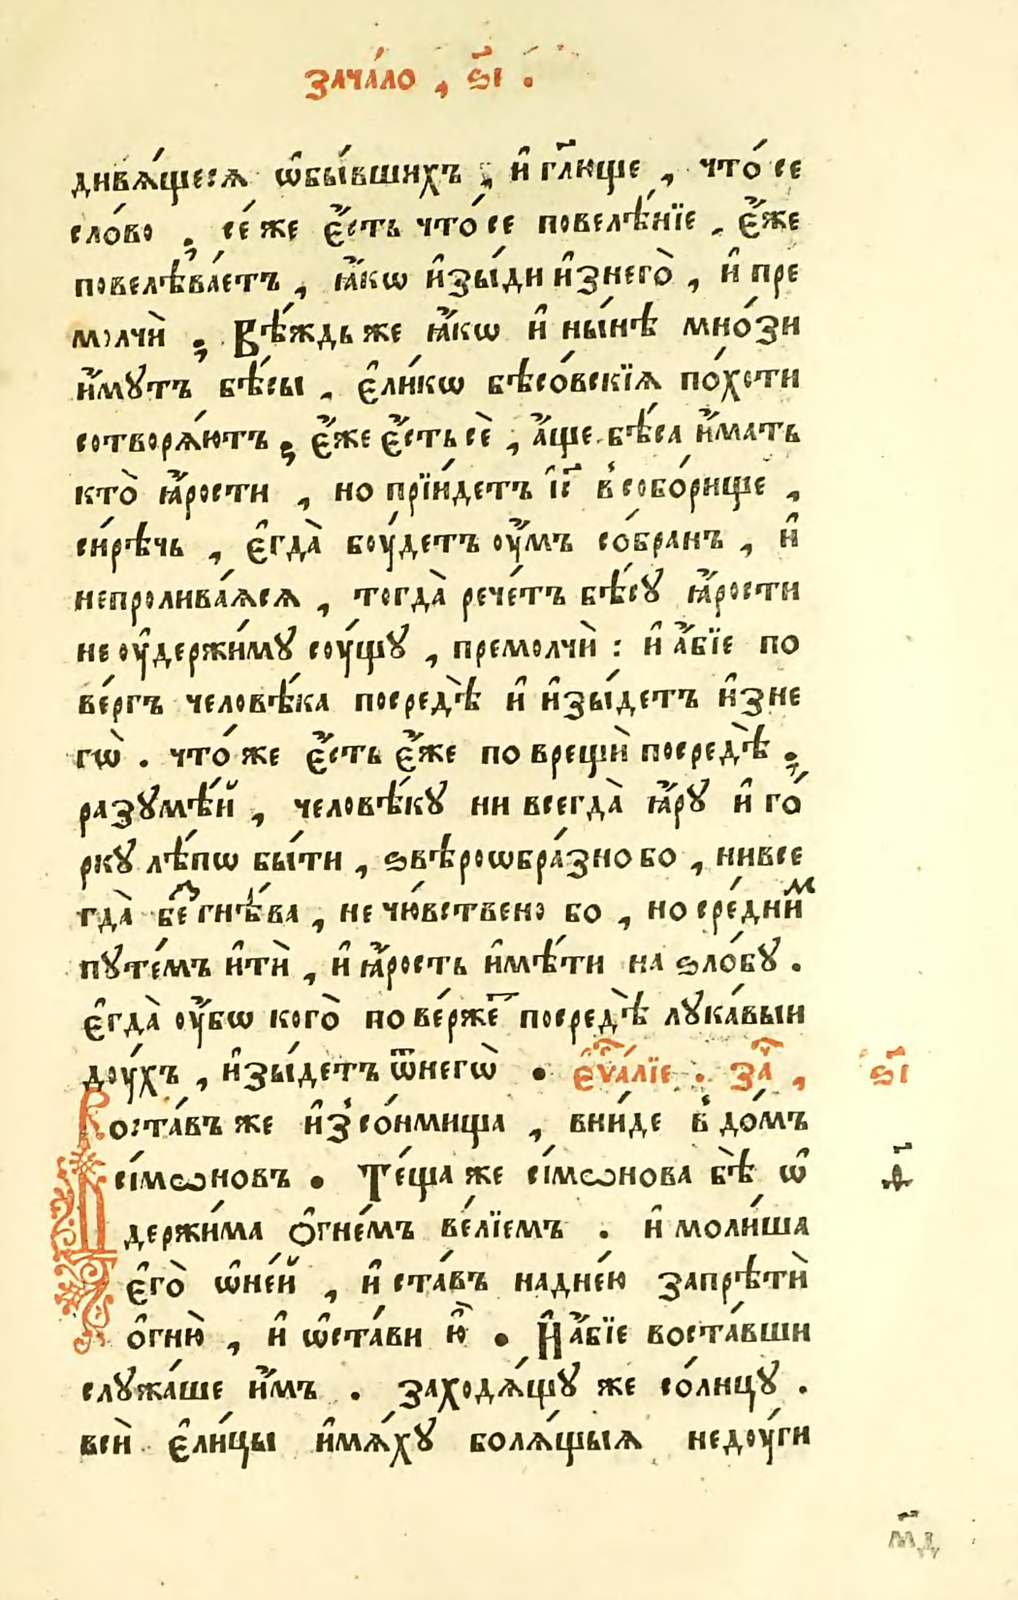 зача́ло , ѕ҃і .
дивѧ́щеся ѡ҆бы́вшихъ , и҆ гл҃юще , что́ се
сло́во , се́ же є҆́сть что́ се повелѣ́нїе , є҆́же
повелѣва́етъ , ꙗ҆́кѡ и҆зы́ди и҆знего̀ , и҆ пре
молчѝ ; Вѣ́ждь же ꙗ҆́кѡ и҆ ны́нѣ мно́зи
и҆́мꙋтъ бѣ́сы , є҆ли́кѡ бѣсо́вскїѧ по́хоти
сотворѧ́ютъ ; є҆́же є҆́сть сѐ , а҆́ще бѣ́са и҆́мать
кто̀ ꙗ҆́рости , но прїи́детъ і҆с҃ в̾собо́рище ,
си́рѣчь , є҆гда̀ боу́детъ оу҆́мъ со́бранъ , и҆
непролива́ѧсѧ , тогда̀ рече́тъ бѣ́сꙋ ꙗ҆́рости
не оу҆держи́мꙋ соу́щꙋ , премолчѝ : и҆ а҆́бїе по
ве́ргъ человѣ́ка посредѣ̀ и҆ и҆зы́детъ и҆зне
гѡ̀ . что́ же є҆́сть є҆́же по врещѝ посредѣ̀ ;
разꙋмѣ́й , человѣ́кꙋ ни всегда̀ ꙗ҆́рꙋ и҆ го́
ркꙋ лѣ́пѡ бы́ти , ѕвѣ́роѡбра́зно бо , нивсе
гда̀ беⷥ гнѣ́ва , не чю́вствено бо , но сре́дниⷨ
пꙋте́мъ и҆тѝ , и҆ ꙗ҆́рость и҆мѣ́ти на ѕло́бꙋ .
є҆гда̀ оу҆́бѡ кого̀ по ве́ржеⷮ посредѣ̀ лꙋка́выи
доу́хъ , и҆зы́детъ ѿнегѡ̀ . є҆ѵⷢ҇а́лїе . заⷱ҇ , ѕ҃і
Воста́въ же и҆з̾со́нмища , вни́де в̾ до́мъ
сі́мѡновъ . Те́ща же сі́мѡнова бѣ̀ ѡ҆
держи́ма ѻ҆гне́мъ ве́лїемъ . и҆ моли́ша
є҆го̀ ѡ҆не́й , и҆ ста́въ надне́ю запрѣтѝ
ѻ҆гню̀ , и҆ ѡ҆ста́ви ю҆̀ . И҆ а҆́бїе воста́вши
слꙋжа́ше и҆́мъ . заходѧ́щꙋ же со́лнцꙋ .
всѝ є҆ли́цы и҆мѧ́хꙋ болѧ́щыѧ недоу́ги
м҃д